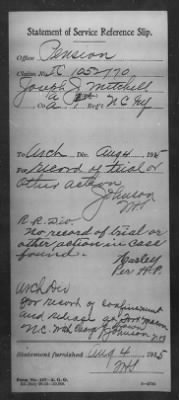 Statement of Service Reference Slip.
Office Pension
Claim No. 1052770
Joseph J. Mitchell
Co. A Reg't N C My
To Arch Div. Aug 4 1925
For record of trial or
other action
Johnson
R. R. Div.
no record of trial or
other action in case
found.
Hurley
Per H.P.
Arch Div
For record of confinement
and release at Fort
N.C.
Johnson
Statement furnished Aug 4 1925